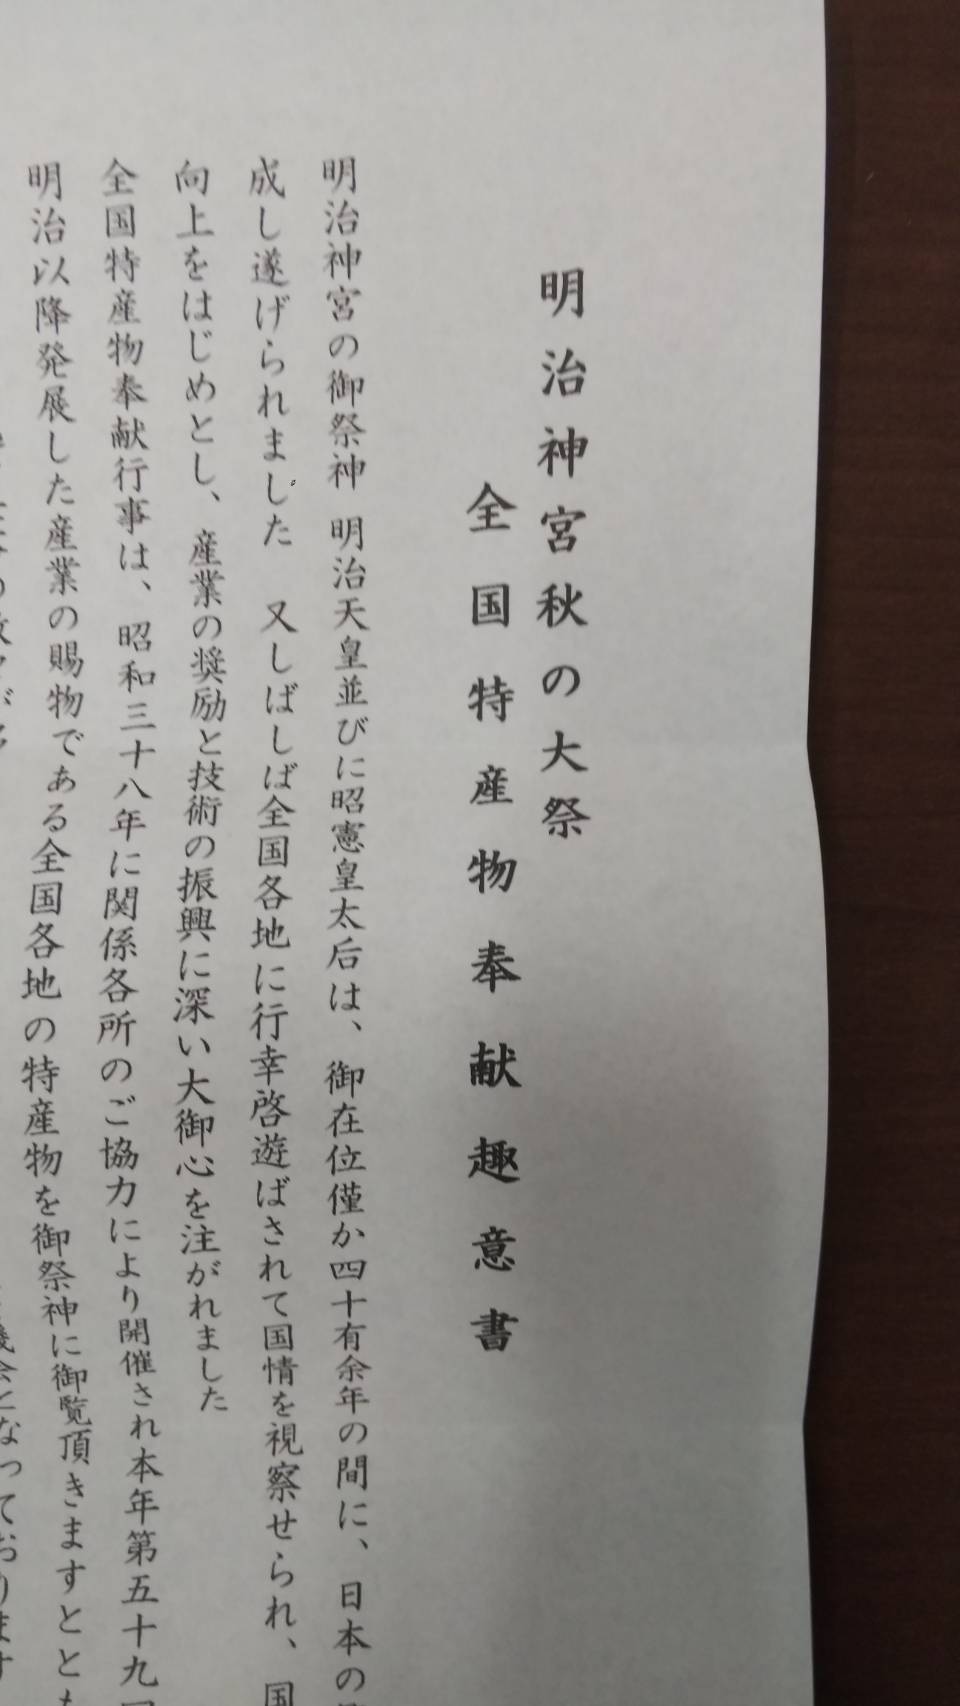 明治神宮秋の大祭
全国特産物奉献趣意書
明治神宮の御祭神 明治天皇並びに昭憲皇太后は、御在位僅か四十有余年の間に、日本の
成し遂げられました 又しばしば全国各地に行幸啓遊ばされて国情を視察せられ、国
向上をはじめとし、産業の奨励と技術の振興に深い大御心を注がれました
全国特産物奉献行事は、昭和三十八年に関係各所のご協力により開催され本年第五十九回
明治以降発展した産業の賜物である全国各地の特産物を御祭神に御覧頂きますととも
機会となっております